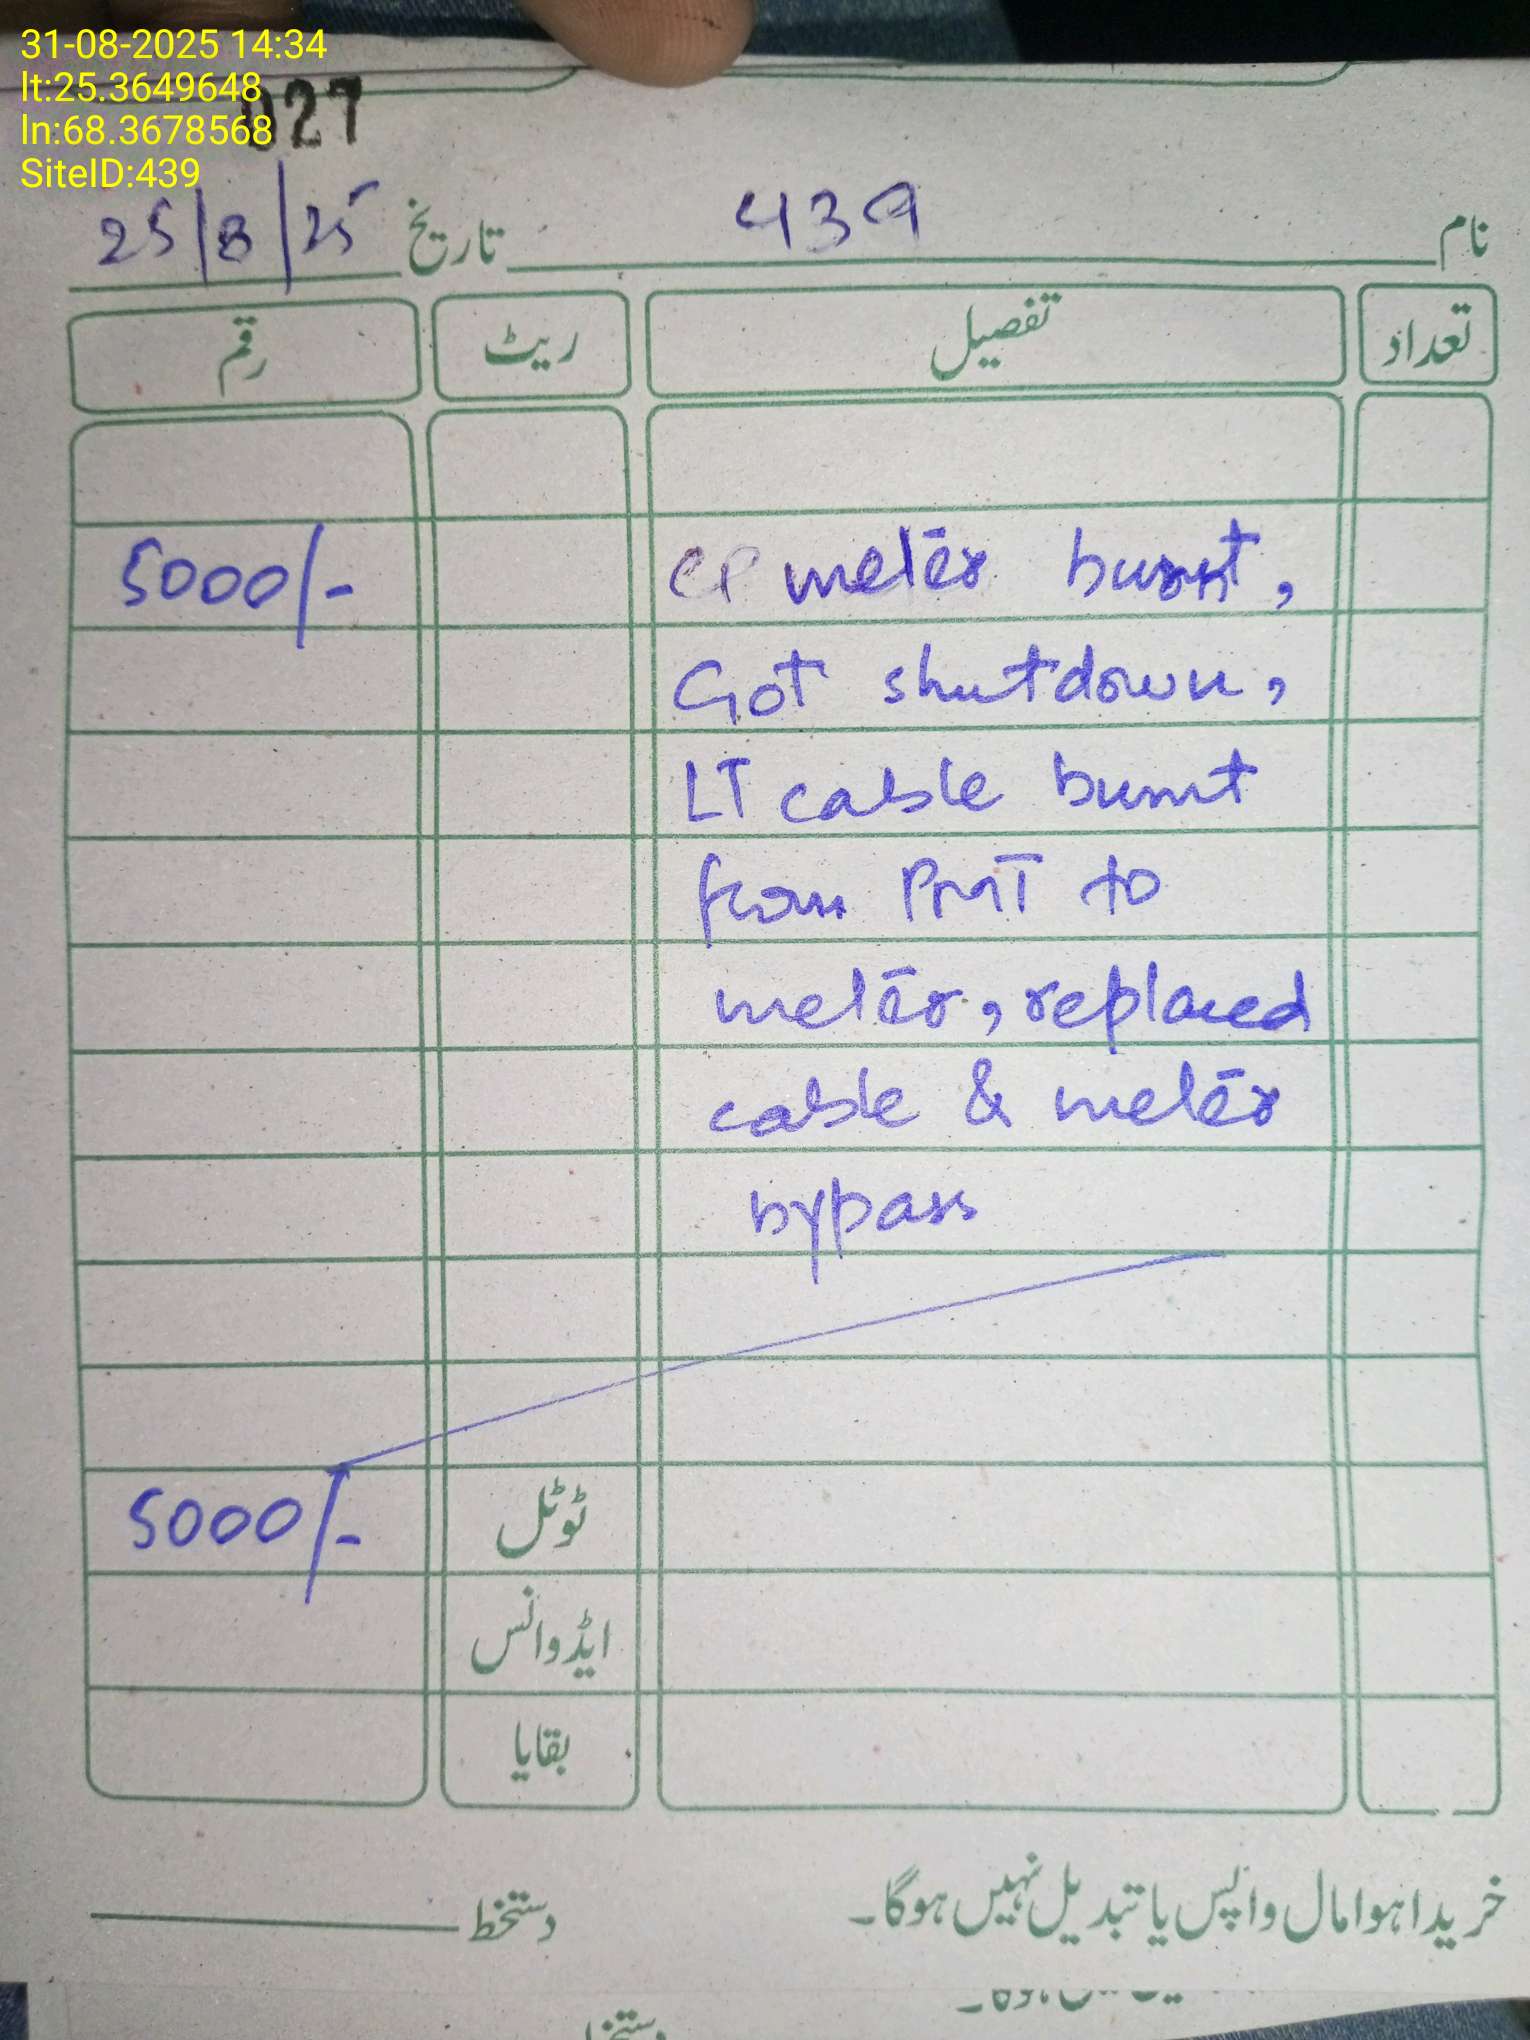 31-08-2025 14:34
lt:25.3649648
ln:68.3678568
SiteID:439
027
نام 439 تاریخ 25/8/25
تعداد تفصیل ریٹ رقم
CP meter burnt, 5000/-
Got shutdown,
LT cable burnt
from PMT to
meter, replaced
cable & meter
bypass
ٹوٹل 5000/-
ایڈوانس
بقایا
خریدا ہوا مال واپس یا تبدیل نہیں ہوگا۔
دستخط